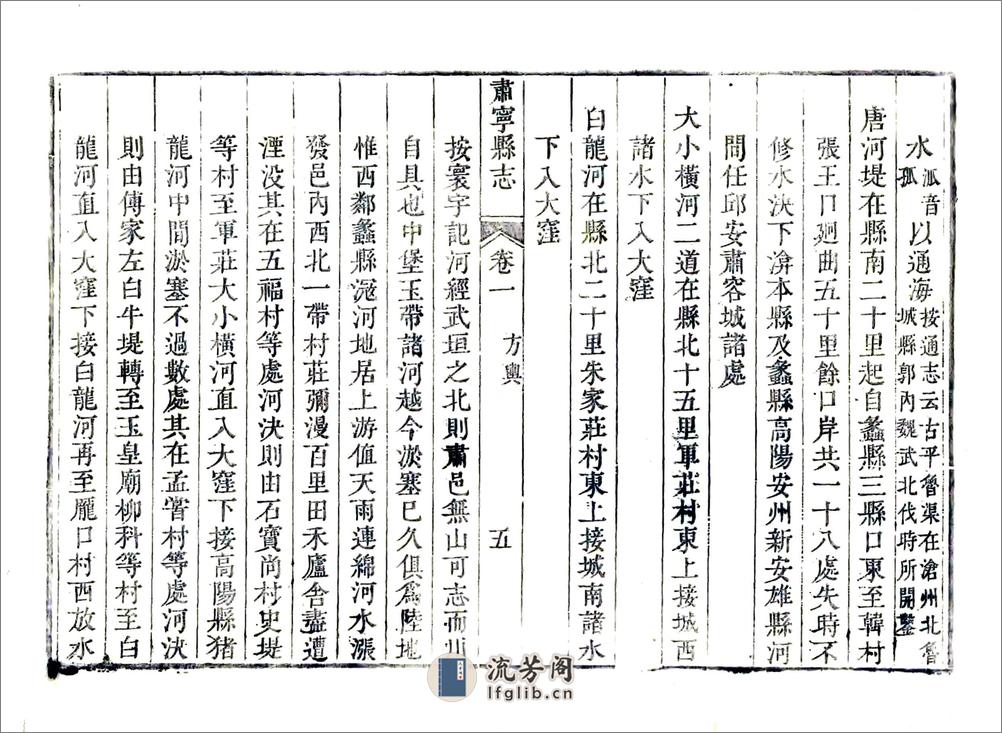 水泒音孤以通海按通志云古平魯渠在滄州北魯城縣郭內魏武北伐時所開鑿
唐河堤在縣南二十里起自蠡縣三縣口東至韓村
張王口廻曲五十里餘口岸共一十八處失時不
修水決下渰本縣及蠡縣高陽安州新安雄縣河
間任邱安肅容城諸處
大小橫河二道在縣北十五里軍莊村東上接城西
諸水下入大窪
白龍河在縣北二十里朱家莊村東上接城南諸水
下入大窪
肅寧縣志 卷一 方輿 五
按寰宇記河經武垣之北則肅邑無山可志而川
自具也中堡玉帶諸河越今淤塞已久俱爲陸地
惟西鄰蠡縣滱河地居上游值天雨連綿河水漲
發邑內西北一帶村莊彌漫百里田禾廬舍盡遭
湮没其在五福村等處河決則由石寶尚村史堤
等村至軍莊大小橫河直入大窪下接高陽縣猪
龍河中間淤塞不過數處其在孟嘗村等處河決
則由傅家左白牛堤轉至玉皇廟柳科等村至白
龍河直入大窪下接白龍河再至龐口村西放水
流芳阁
lfglib.cn